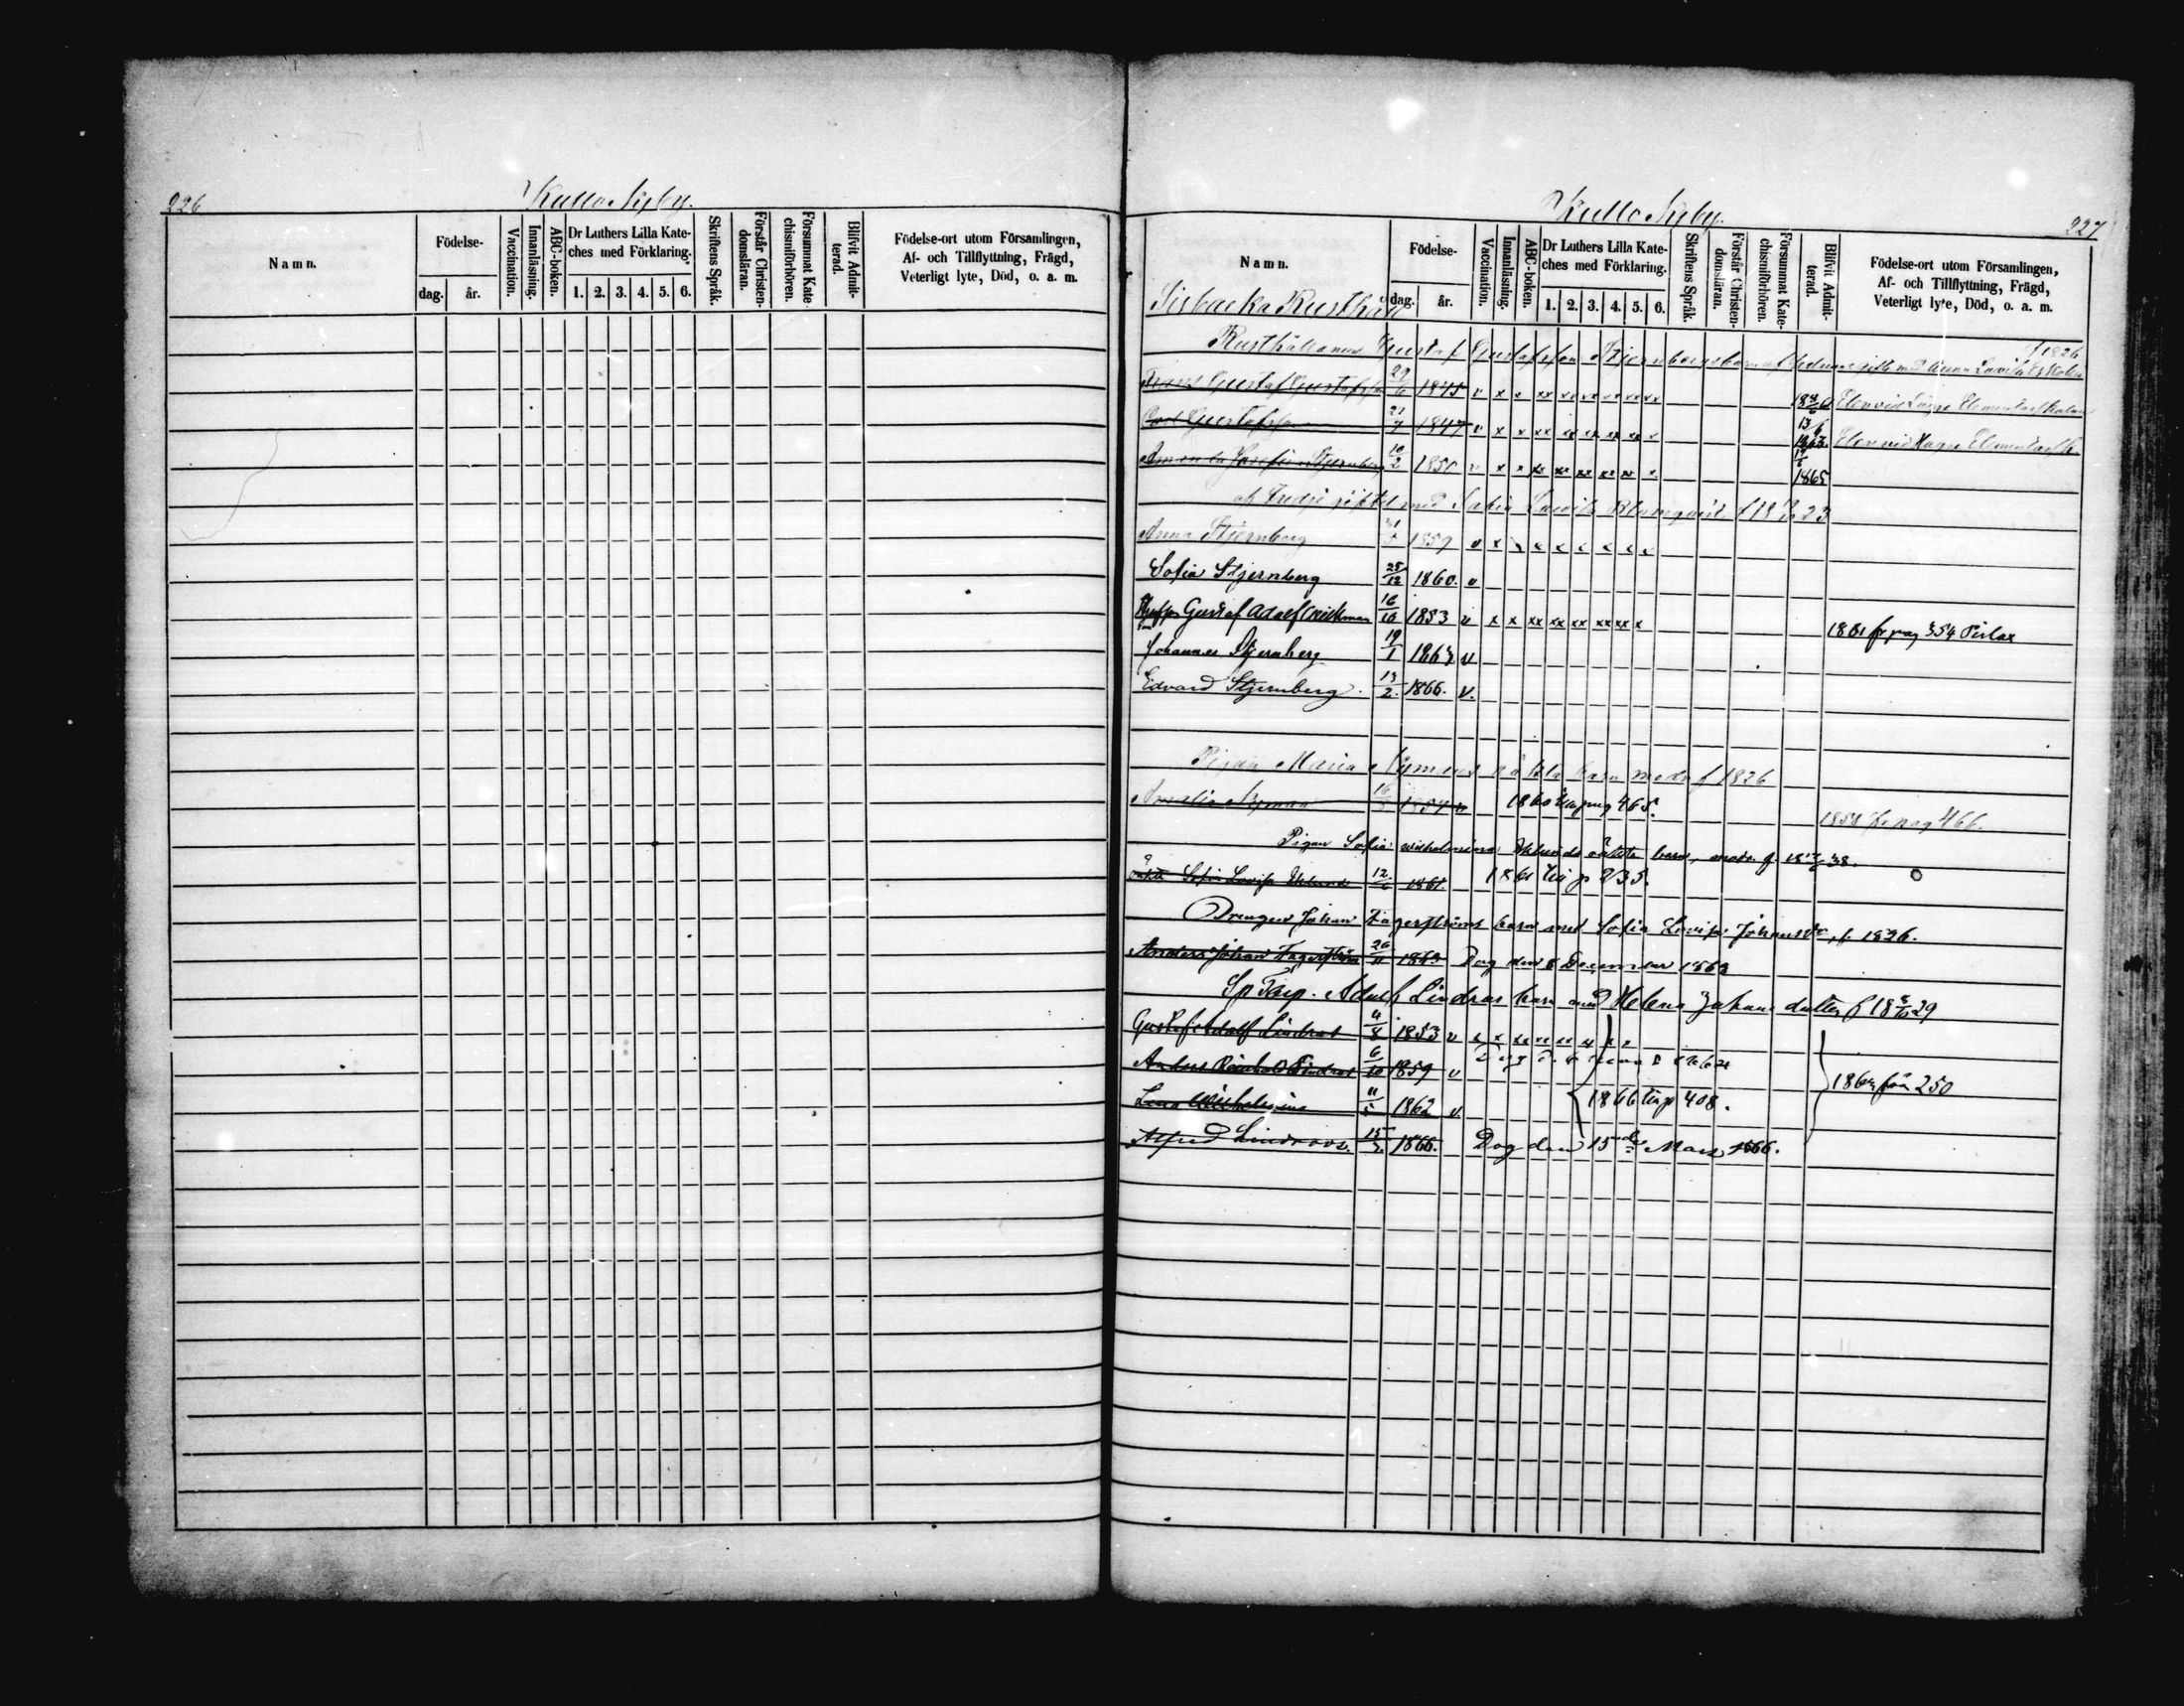 226
Kullo Nyby.
Namn.
Födelse-
dag. år.
Vaccination.
Innanläsning.
ABC-boken.
Dr Luthers Lilla Kate-
ches med Förklaring.
1. 2. 3. 4. 5. 6.
Skriftens Språk.
Förstår Christen-
domsläran.
Försummat Kate-
chismiförhören.
Blifvit Admit-
terad.
Födelse-ort utom Församlingen,
Af- och Tillflyttning, Frägd,
Veterligt lyte, Död, o. a. m.
Kullo Nyby.
227
Namn.
Födelse-
dag. år.
Vaccination.
Innanläsning.
ABC-boken.
Dr Luthers Lilla Kate-
ches med Förklaring.
1. 2. 3. 4. 5. 6.
Skriftens Språk.
Förstår Christen-
domsläran.
Försummat Kate-
chismiförhören.
Blifvit Admit-
terad.
Födelse-ort utom Församlingen,
Af- och Tillflyttning, Frägd,
Veterligt lyte, Död, o. a. m.
Sisbacka Rusthåll
f 1826
Rusthållaren Gustaf Gustafsson Stjernbergs barn af
Frans Gustaf Gustafsson 29/6 1845 v x x xx xx xx xx xx xx Elev vid Elementarskolan
Carl Gustafsson 21/7 1847 v x x xx xx xx xx xx x 1863 Elev vid
Amanda Josefina Stjernberg 10/2 1850 v x x xx xx xx xx xx x 1865
af Tredje giftet med Maria Lovisa Blomqvist f 18 23
Anna Stjernberg 1859 v x x x x x x x x
Sofia Stjernberg 25/12 1860. v
Gustaf Adolf Wickman 16/10 1853 v x x xx xx xx xx xx x 1861 fr pag 354
Johannes Stjernberg 19/1 1863 v
Edvard Stjernberg. 13/2. 1866. v.
Pigan Maria Nymans oäkta barn modr f 1826
Amalia Nyman 16 1854 v 1860 till pag 465. 1858 fr pag 466.
Pigan Sofia Wilhelmina Eklunds oäkta barn, modr. f. 18 38.
oäkta Sofia Lovisa Eklund 12/6 1861. 1861 till p 235.
Drengen Johan Fagerströms barn med Sofia Lovisa Johansdr, f. 1826.
Anders Johan Fagerström 26/11 1863 Dog den 8 December 1863
Adolf Lindroos barn med Helena Johans dotter f 18 29
Gustaf Adolf Lindroos 4/8 1853 v x x xx xx xx xx x x
Anders Reinhold Lindroos 6/10 1859 v
Lena Wilhelmina 11/5 1862 v. 1866 till p 408. från 250
Alfred Lindroos. 15/3. 1866. Dog den 15de Mars 1866.